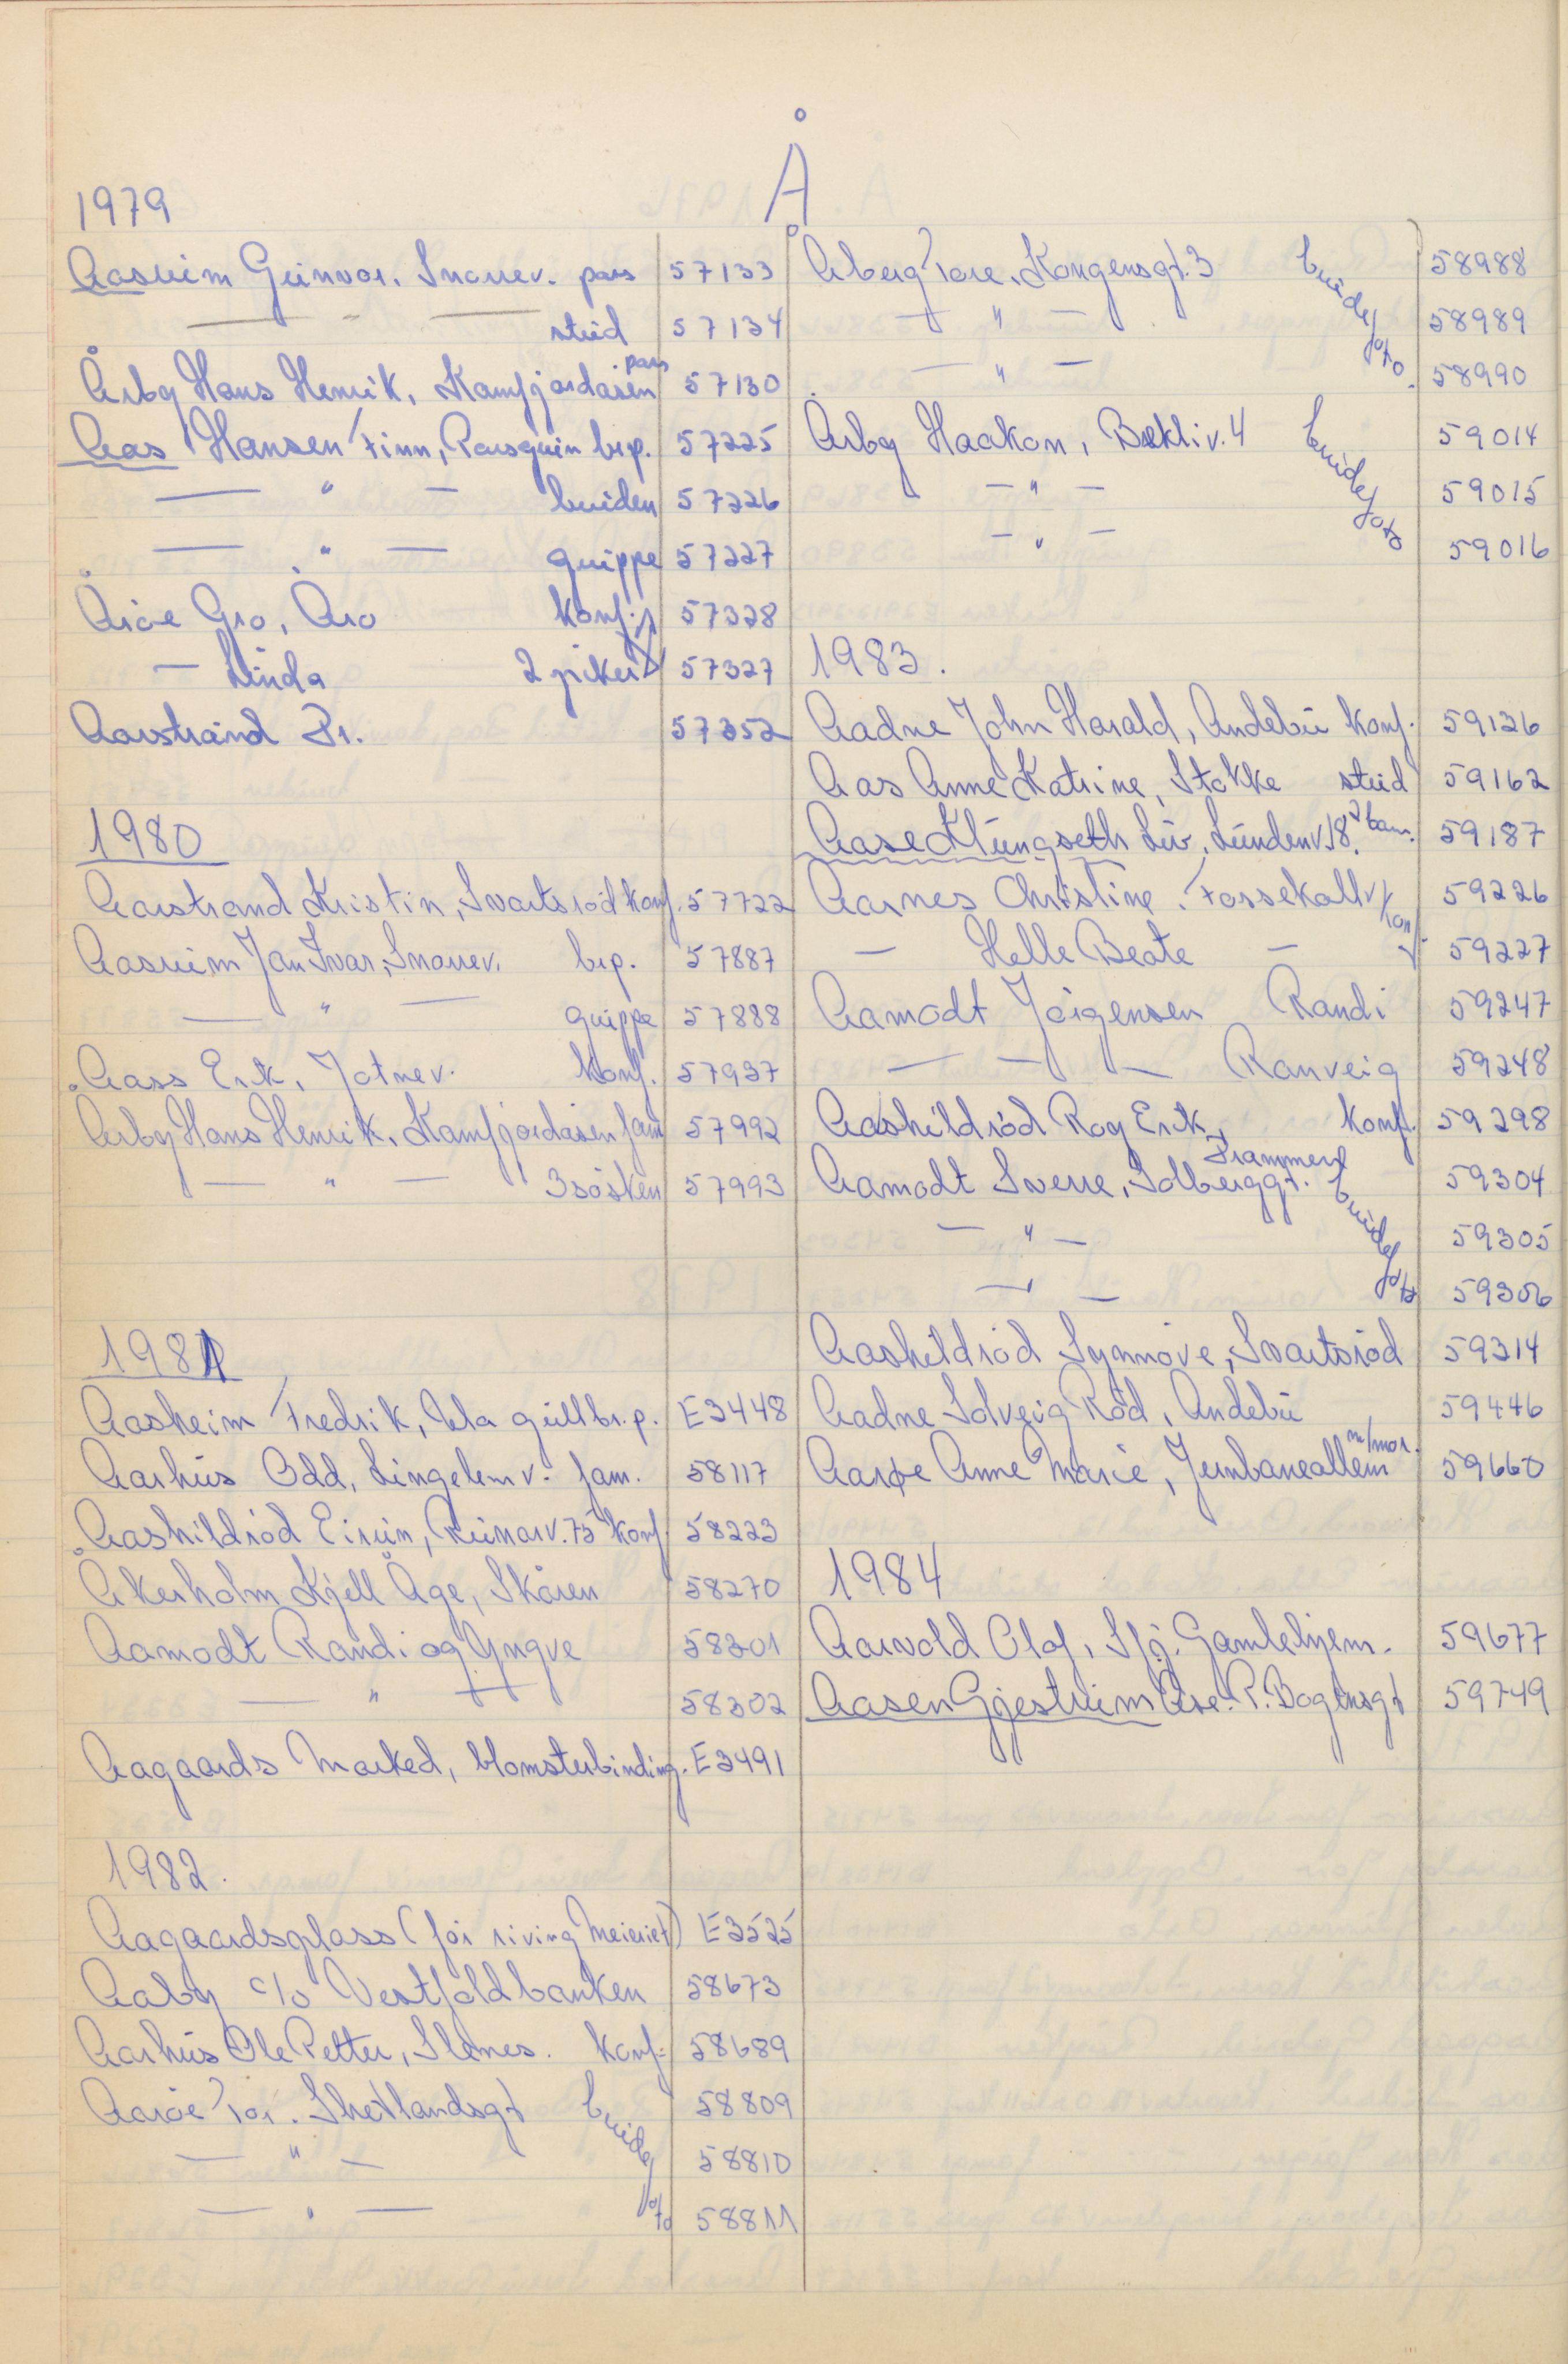 Å
1979
Aasrum Gunvor. Snorrev. pass 57133
— " — stud 57134
Årby Hans Henrik, Kamfjordåsen pass 57130
Aas Hansen Finn, brp. 57225
— " — bruden 57226
— " — gruppe 57227
Århe Gro, Aro konf. 57328
— Linda 2 piker 57327
Aarstrand Br. 57352
1980
Aarstrand Kristin, Svartsrød konf. 57722
Aasrum Jan Ivar, Snorrev. brp. 57887
— " — gruppe 57888
Aass Erik, Jotnev. konf. 57937
Årby Hans Henrik, Kamfjordåsen fam 57992
— " — 3 søsken 57993
1981
Aasheim Fredrik, Ula gullbr.p. E3448
Aarhus Odd, Lingelemv. fam. 58117
Aashildrød Eirun, Runarv. 75 konf. 58223
Åkerholm Kjell Åge, Skåren 58270
Aamodt Randi og Yngve 58301
— " — 58302
Aagaards Marked, blomsterbinding. E3491
1982.
Aagaardsplass (før riving Meieriet) E3525
Aaby c/o Vestfoldbanken 58673
Aarhus Ole Petter, Stemes. konf. 58689
Aarøe Tor. Shetlandsgt brudefoto 58809
— " — 58810
— " — 58811
Åberg Tore, Kongensgt. 3 brudefoto 58988
— " — 58989
— " — 58990
Årby Haakon, Bekkliv. 4 brudefoto 59014
— " — 59015
— " — 59016
1983.
Aadne John Harald, Andebu konf. 59136
Aas Anne Katrine, Stokke stud 59162
Aase Klungseth Liv, Lundenv. 18. 2 barn. 59187
Aarnes Christine. Fossekallv konf. 59226
— Helle Beate — 59227
Aamodt Jørgensen Randi 59247
— — — Ranveig 59248
Aashildrød Roy Erik, konf. 59298
Aamodt Sverre, Solberggt. Drammen brudefoto 59304
— " — 59305
— " — 59306
Aashildrød Synnøve, Svartsrød 59314
Aadne Solveig Rød, Andebu 59446
Aarøe Anne Marie, Jernbanealleen m/mor. 59660
1984
Aarvold Olof, Sfj. Gamlehjem. 59677
Aasen Gjestrum Åse. P. Bogensgt 59749